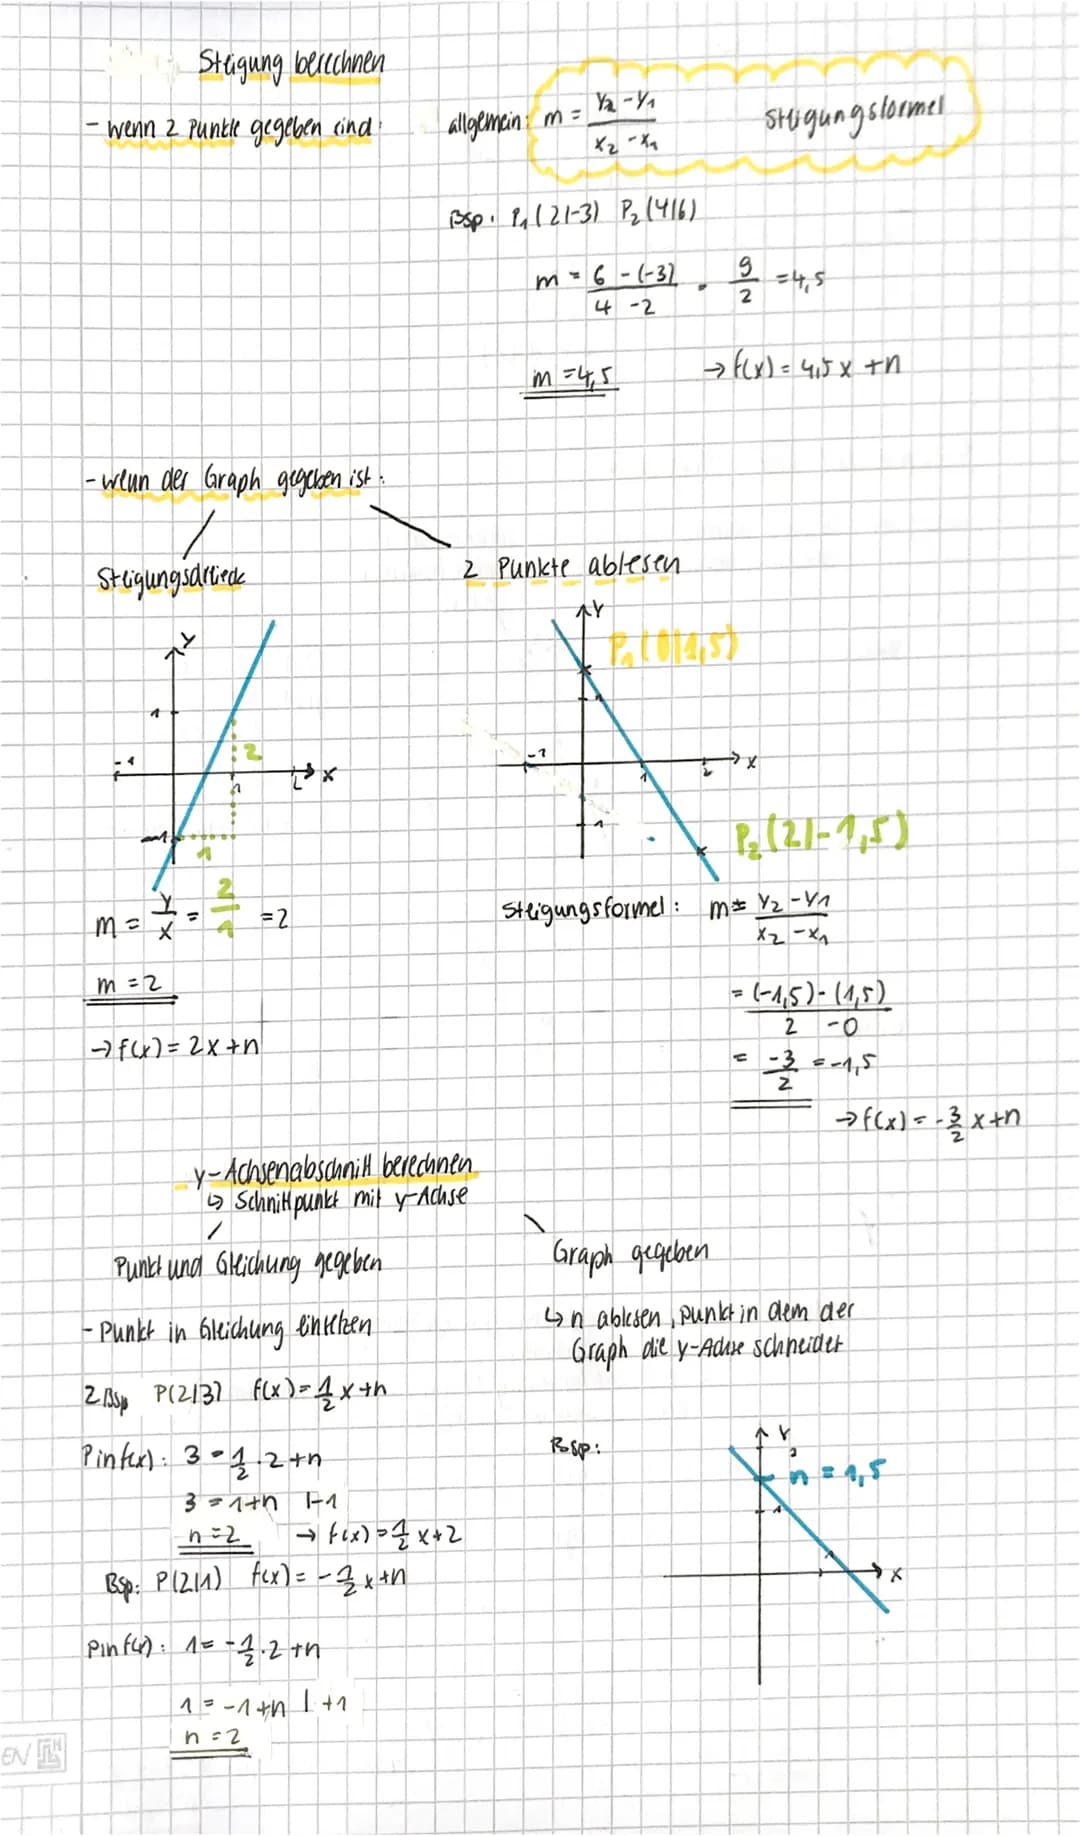 Steigung berechnen
- wenn 2 Punkte gegeben sind:
allgemein: m = (y₂ - y₁)/(x₂ - x₁) Steigungsformel
Bsp.: P₁(2|-3) P₂(4|6)
m = (6 - (-3))/(4 - 2) = 9/2 = 4,5
m = 4,5 → f(x) = 4,5x + n
- wenn der Graph gegeben ist:
Steigungsdreieck
2 Punkte ablesen
y
1
-1
2
1
2
x
-1
1
m = y/x = 2/1 = 2
m = 2
→ f(x) = 2x + n
y
P₁(0|1,5)
1
-1
1
2
x
1
P₂(2|-1,5)
Steigungsformel: m = (y₂ - y₁)/(x₂ - x₁)
= ((-1,5) - (1,5))/(2 - 0)
= -3/2 = -1,5
→ f(x) = -3/2 x + n
y-Achsenabschnitt berechnen
↳ Schnittpunkt mit y-Achse
Punkt und Gleichung gegeben
- Punkt in Gleichung einsetzen
2 Bsp P(2|3) f(x) = 1/2 x + n
P in f(x): 3 = 1/2 · 2 + n
3 = 1 + n |-1
n = 2 → f(x) = 1/2 x + 2
Bsp: P(2|1) f(x) = -1/2 x + n
P in f(x): 1 = -1/2 · 2 + n
1 = -1 + n | +1
n = 2
Graph gegeben
↳ n ablesen, punkt in dem der
Graph die y-Achse schneidet
Bsp:
y
n = 1,5
1
1
x
EN